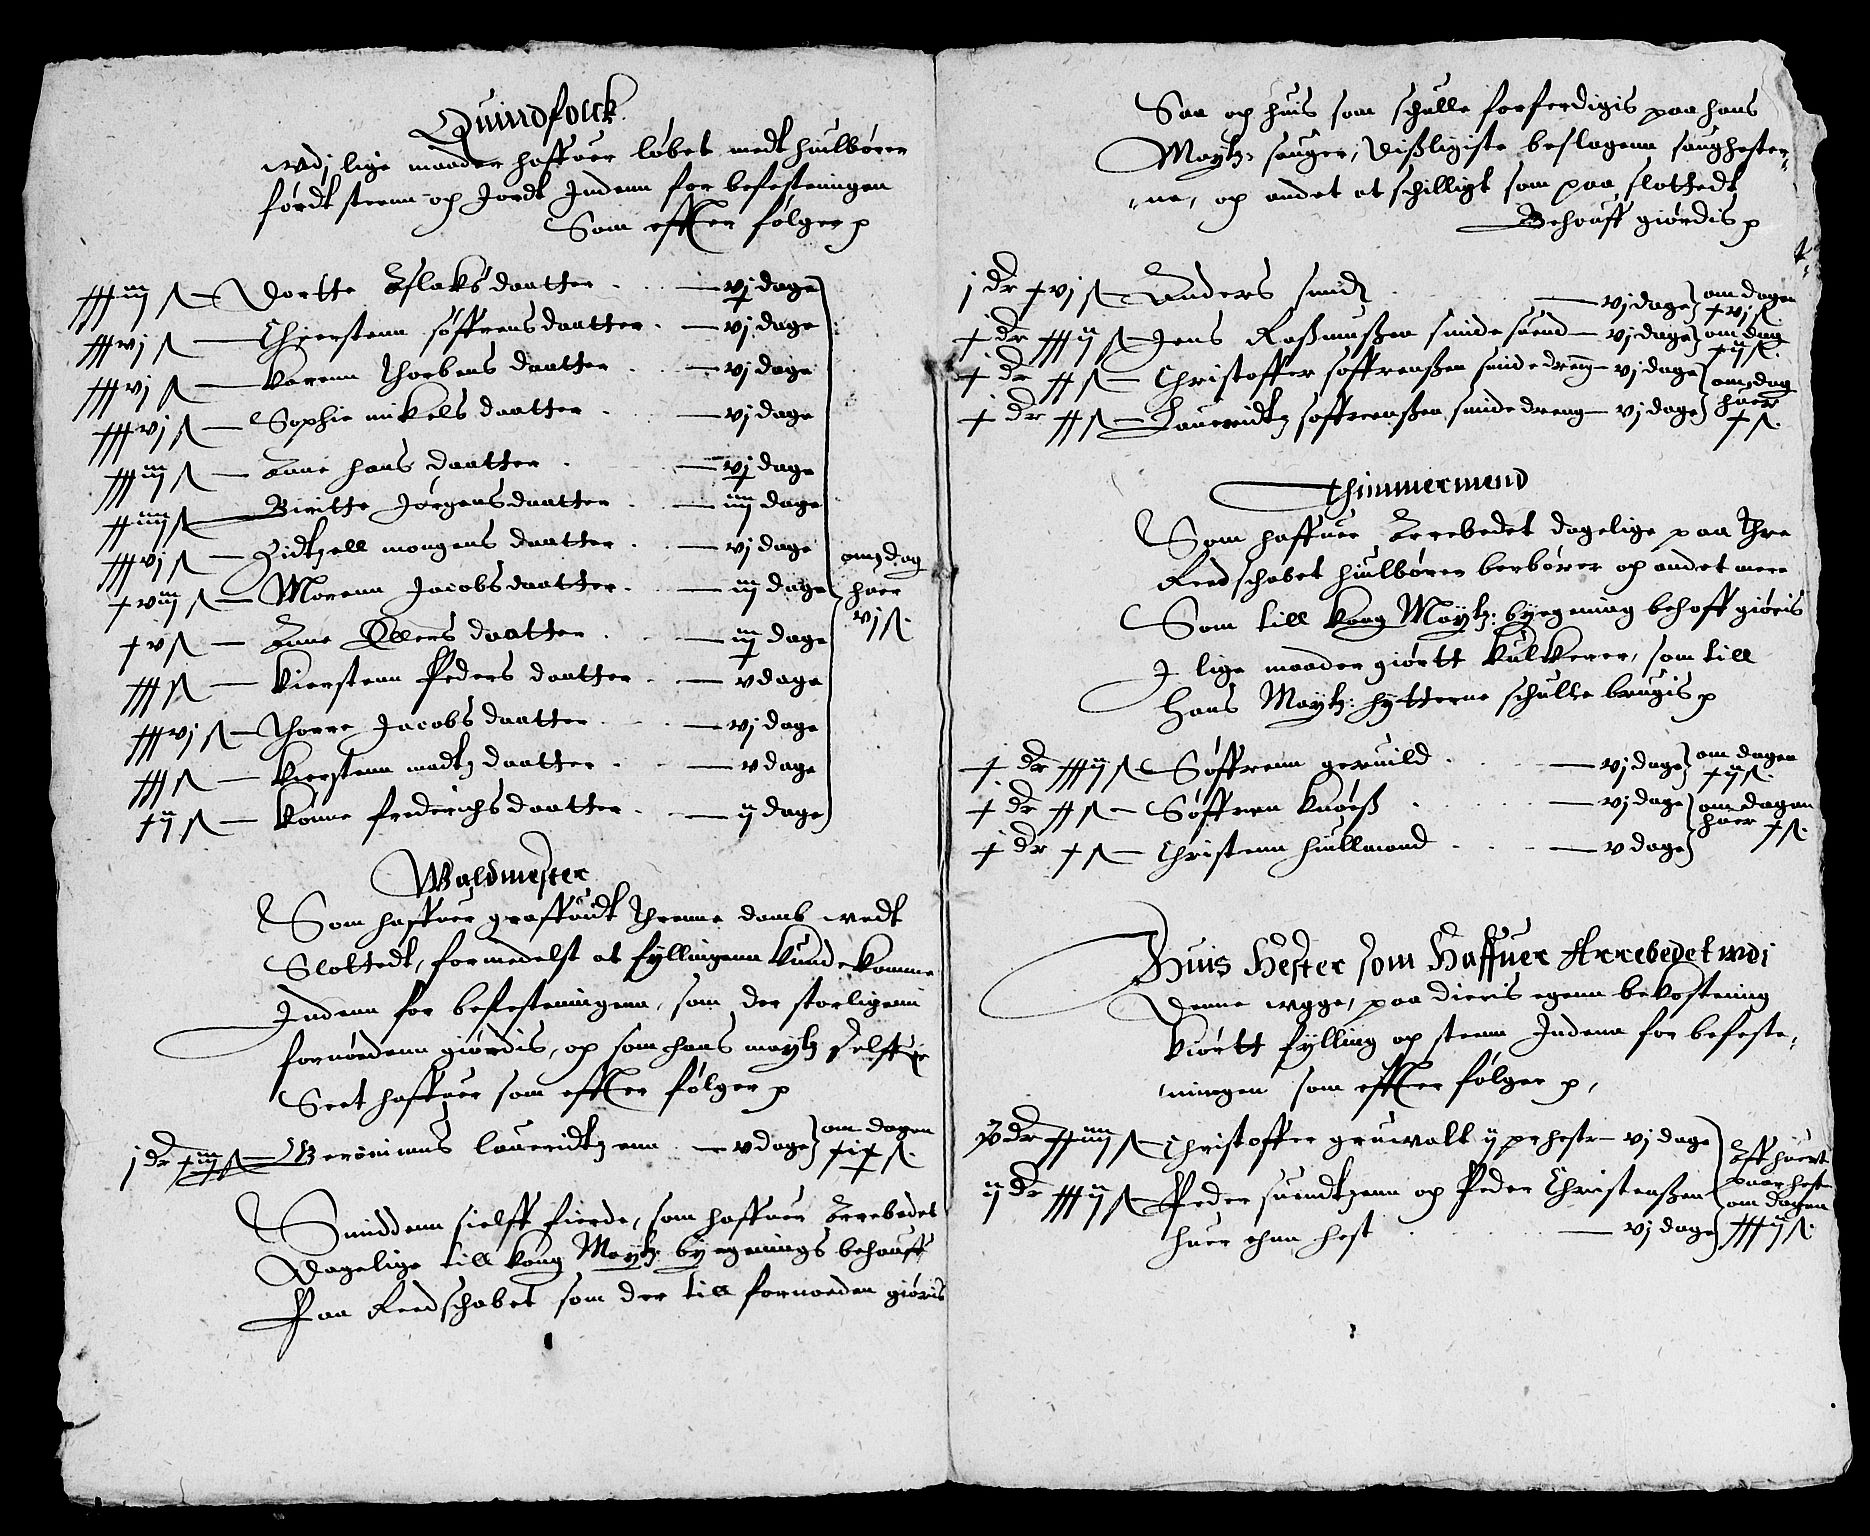 Quindfolck
wdj lige maader haffuer løbet medt hiulbører
førdt steenn och Jordt Indenn for befestningen
Som effter følger
Dortte Aslaks daatter – vj dage
Chierstenn søffrens daatter – vj dage
Karenn Thorbens daatter – vj dage
Sophie nikels daatter – vj dage
Anne hans daatter – vj dage
Biritte Jørgens daatter – iiij dage
Zidtzell mongens daatter – vj dage
Marenn Jacobs daatter – iiij dage
Anne Ellers daatter – iiij dage
Kierstenn Peders daatter – v dage
Thore Jacobs daatter – vj dage
Kierstenn madtz daatter – v dage
Könne frederichs daatter – ij dage
om dag
huer
vj ß.
Waldmester
Som haffuer graffuidt Thenne damb wedt
Slottedt, formedelst at fyllingenn kunde komme
Indenn for befestningenn, som der storligenn
fornødenn giørdis, och som hans maytz selffue
Seet haffuer som effter følger
j dr Gerönimus laueridtzenn – v dage
om dagen
Smiddenn sielff fierde, som haffuer Arrebedet
Dagelige till kong Maytz: bygnings behouff
Paa Reedschabet som der till fornøden giøris
Saa och huis som schulle forferdigis paa hans
Maytz: souger, disligiste beslagenn saughester-
ne, och andet at schilligt som paa slottedt
Behouff giördis
j dr +vj ß Anders smid – vj dage om dagen +vj ß
+ dr ⧻ ij ß Jens Rasmussen smide suend – vj dage om dag +ij ß
+ dr ++ ß Christoffer söffrenssen smide dreng – vj dage om dag
+ dr ++ ß Laueridtz soffrenssen smide dreng – vj dage huer + ß.
Thimmermend
Som haffuer Arrebedet dagelige paa Thre
Reedschabet hiulbører berbører och andet mere
Som till kong Maytz: bygening behoff giøris
I lige maader giørtt kulkerer, som till
Hans Maytz: hytterne schulle brugis
+ dr ⧻ ij ß Søffrenn geruild – vj dage om dagen +ij ß.
+ dr ++ ß – Søffren knöeß – vj dage om dagen
+ dr + ß – Christenn hiullmand – v dage huer + ß.
Huis Hester som Haffuer Arrebedet wdi
Denne wgge, paa dieris egenn bekostening
kiørtt fylling och steen Indenn for befeste-
ningen som effter følger
Christoffer gruwalt ij pr hestr – vj dage
ij dr ⧻ ij ß Peder suindtzenn och Peder Christenßen
huer ehnn hest – vj dage
Aff huert
paar hest
om dagen
⧻ ij ß.